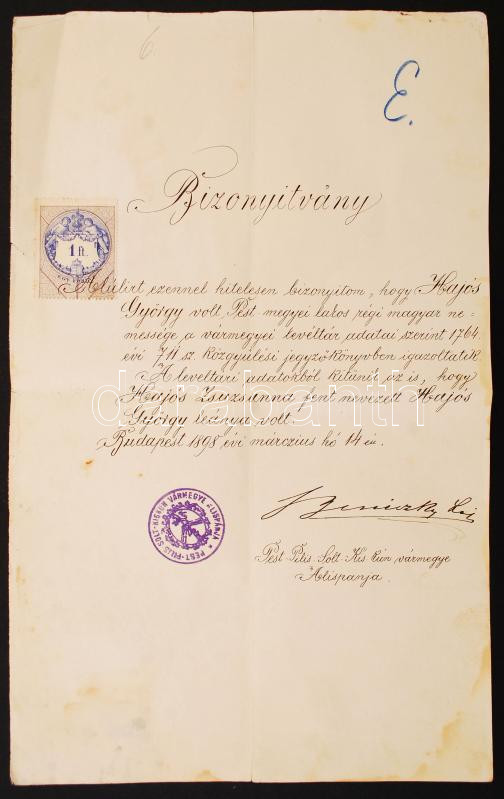 6.
E.
Bizonyitvány
1 ft.
Alúlirt ezennel hitelesen bizonyitom, hogy Hajós
György volt, Pest megyei lakos régi magyar ne-
messége a vármegyei levéltár adatai szerint 1764.
évi 711 sz. közgyülési jegyzőkönyvben igazoltatik.
A levéltári adatokból kitünik az is, hogy
Hajós Zsuzsanna fent nevezett Hajós
György leánya volt.
Budapest 1898 évi marczius hó 14 én.
Beniczky
Pest Pilis Solt Kis Kún vármegye
Alispánja.
PEST-PILIS-SOLT-KISKUN VÁRMEGYE ALISPÁNJA
darabanth